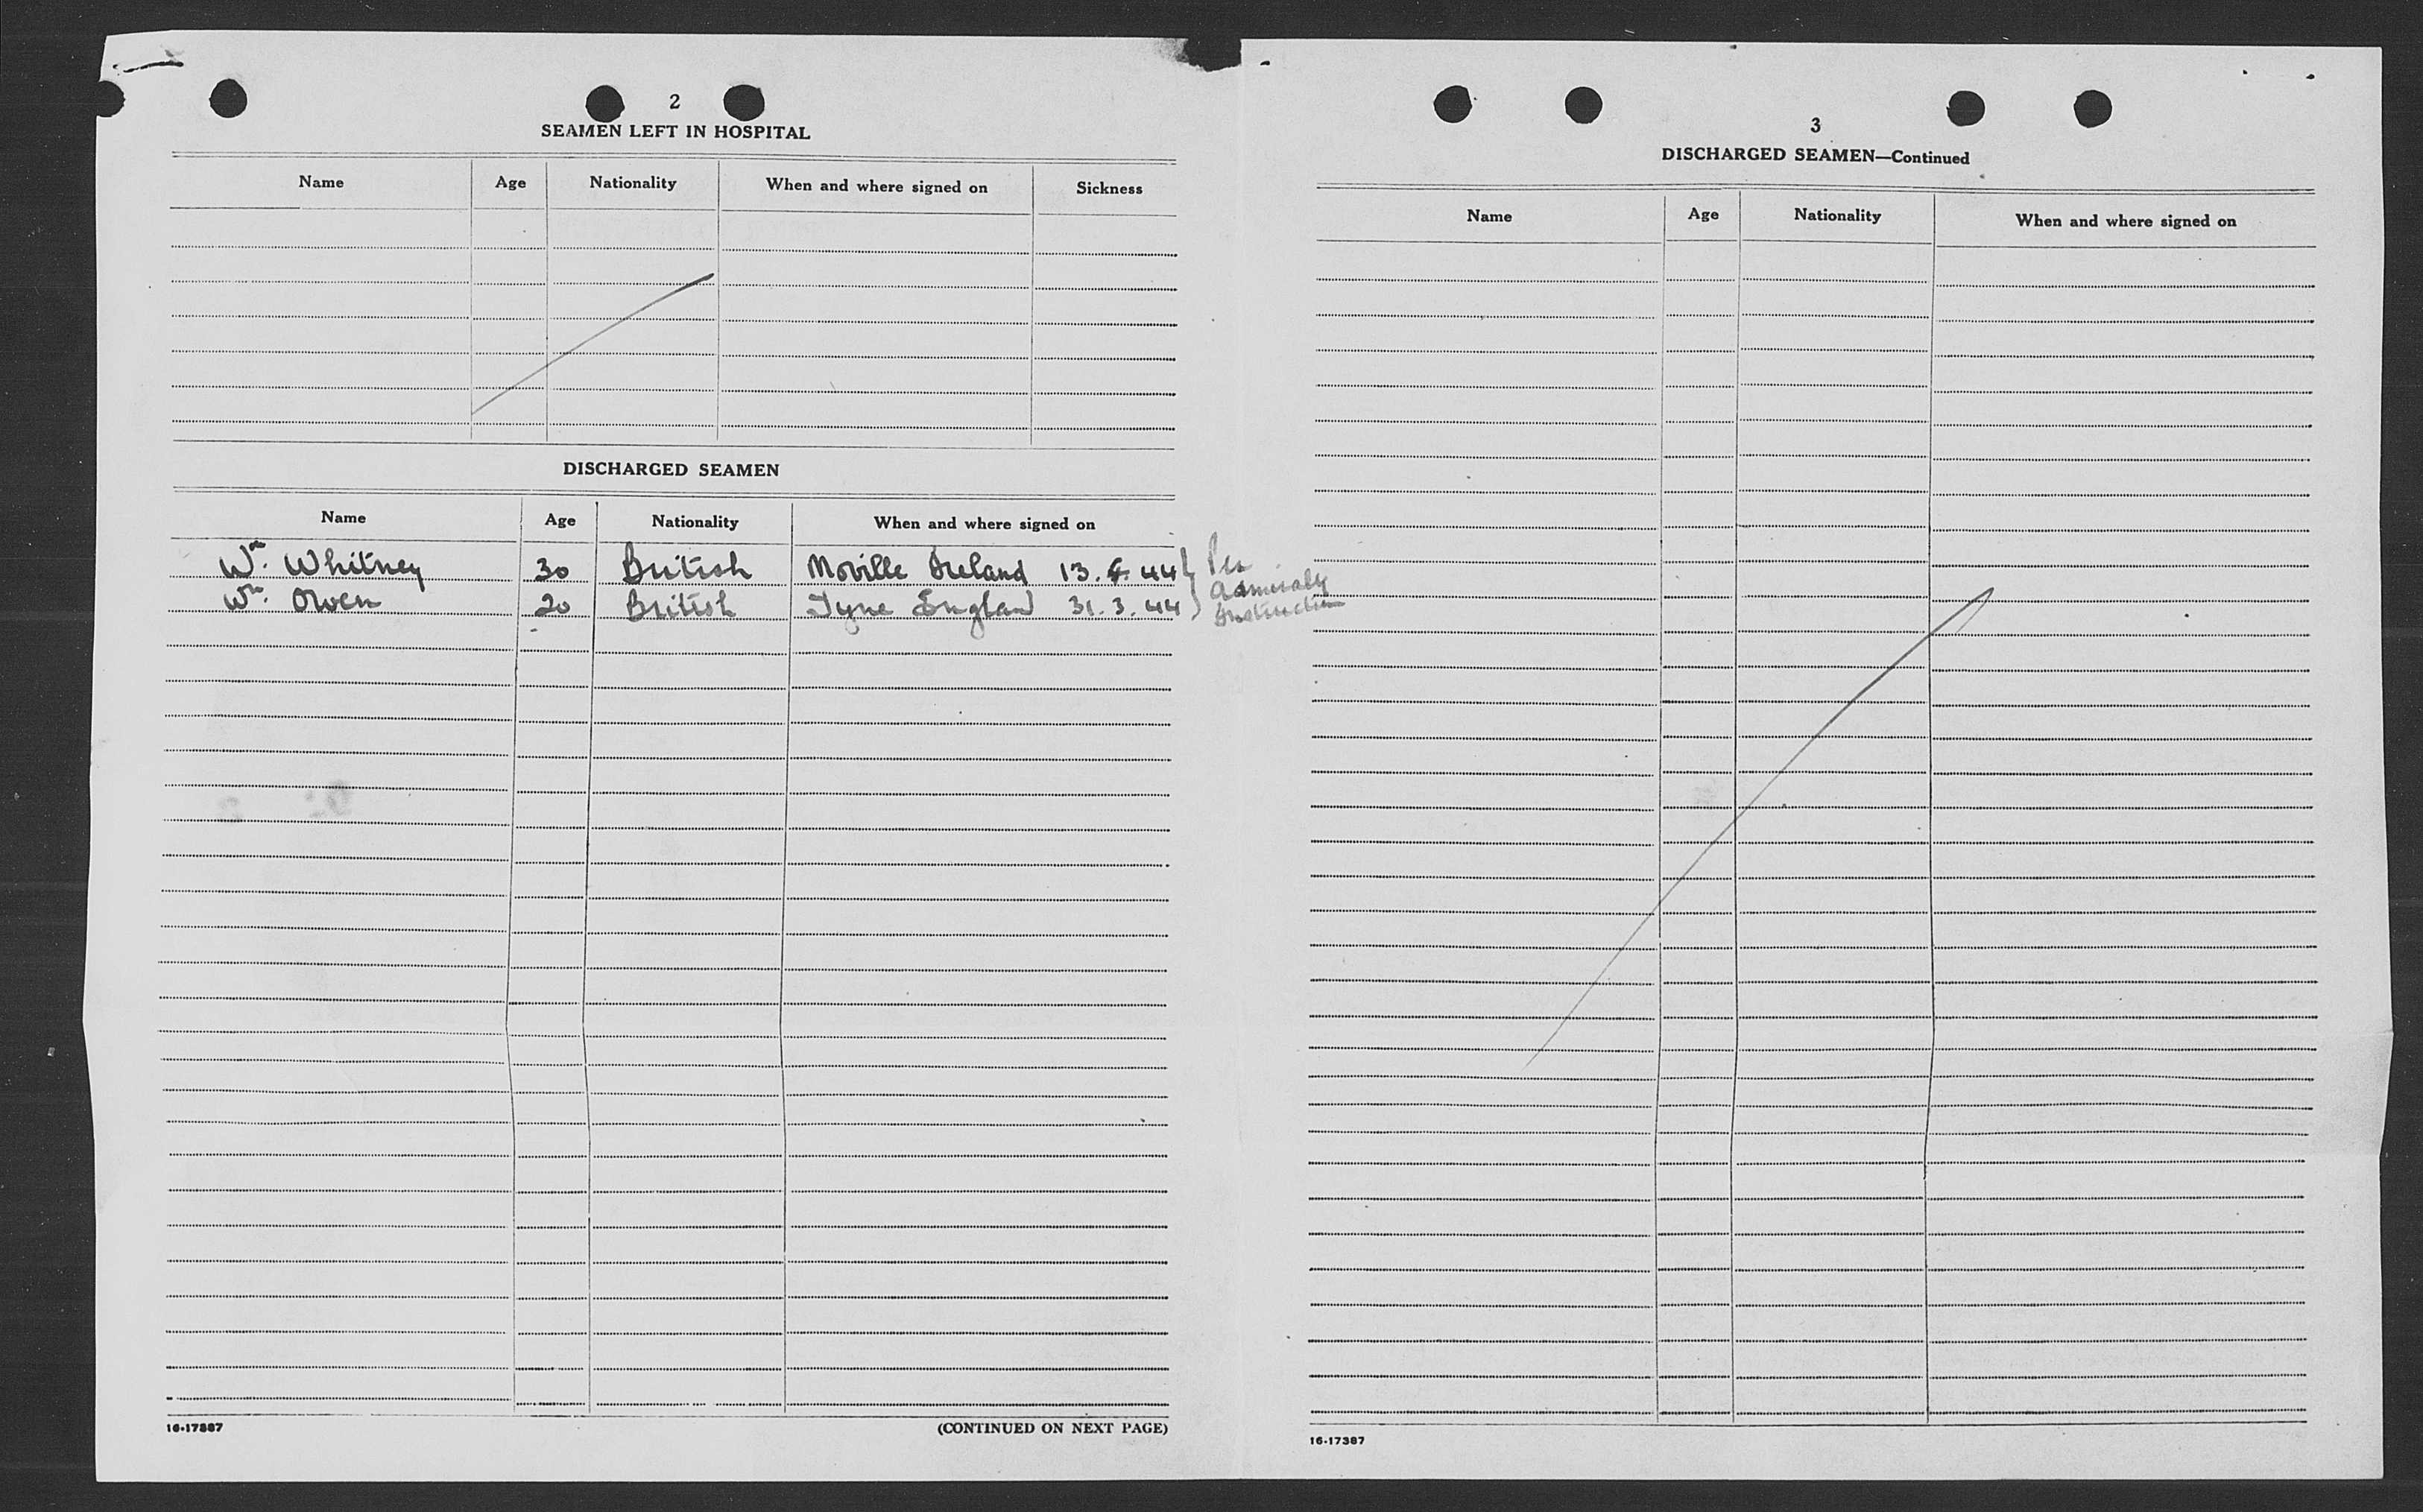 2
SEAMEN LEFT IN HOSPITAL
Name Age Nationality When and where signed on Sickness
DISCHARGED SEAMEN
Name Age Nationality When and where signed on
Wm. Whitney 30 British Moville Ireland 13. 44 } Per
Admiralty
Wm. Owen 20 British Tyne England 31. 3. 44 } Instruction
16-17887
(CONTINUED ON NEXT PAGE)
3
DISCHARGED SEAMEN—Continued
Name Age Nationality When and where signed on
16-17387